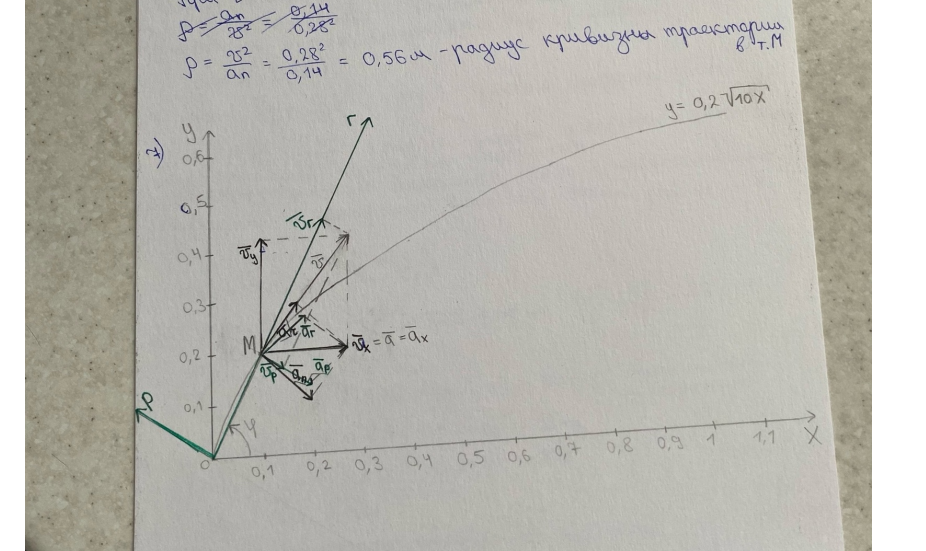 ρ = aₙ/v² = 0,14/0,28²
ρ = v²/aₙ = 0,28²/0,14 = 0,56м - радиус кривизны траектории
в т.М
y = 0,2√10x
7)
y
r
0,6
0,5
v̅r
0,4
v̅y
v̅
0,3
a̅r
M
v̅x = a̅ = a̅x
0,2
v̅p
a̅n
a̅p
ρ
0,1
φ
0
0,1
0,2
0,3
0,4
0,5
0,6
0,7
0,8
0,9
1
1,1
X